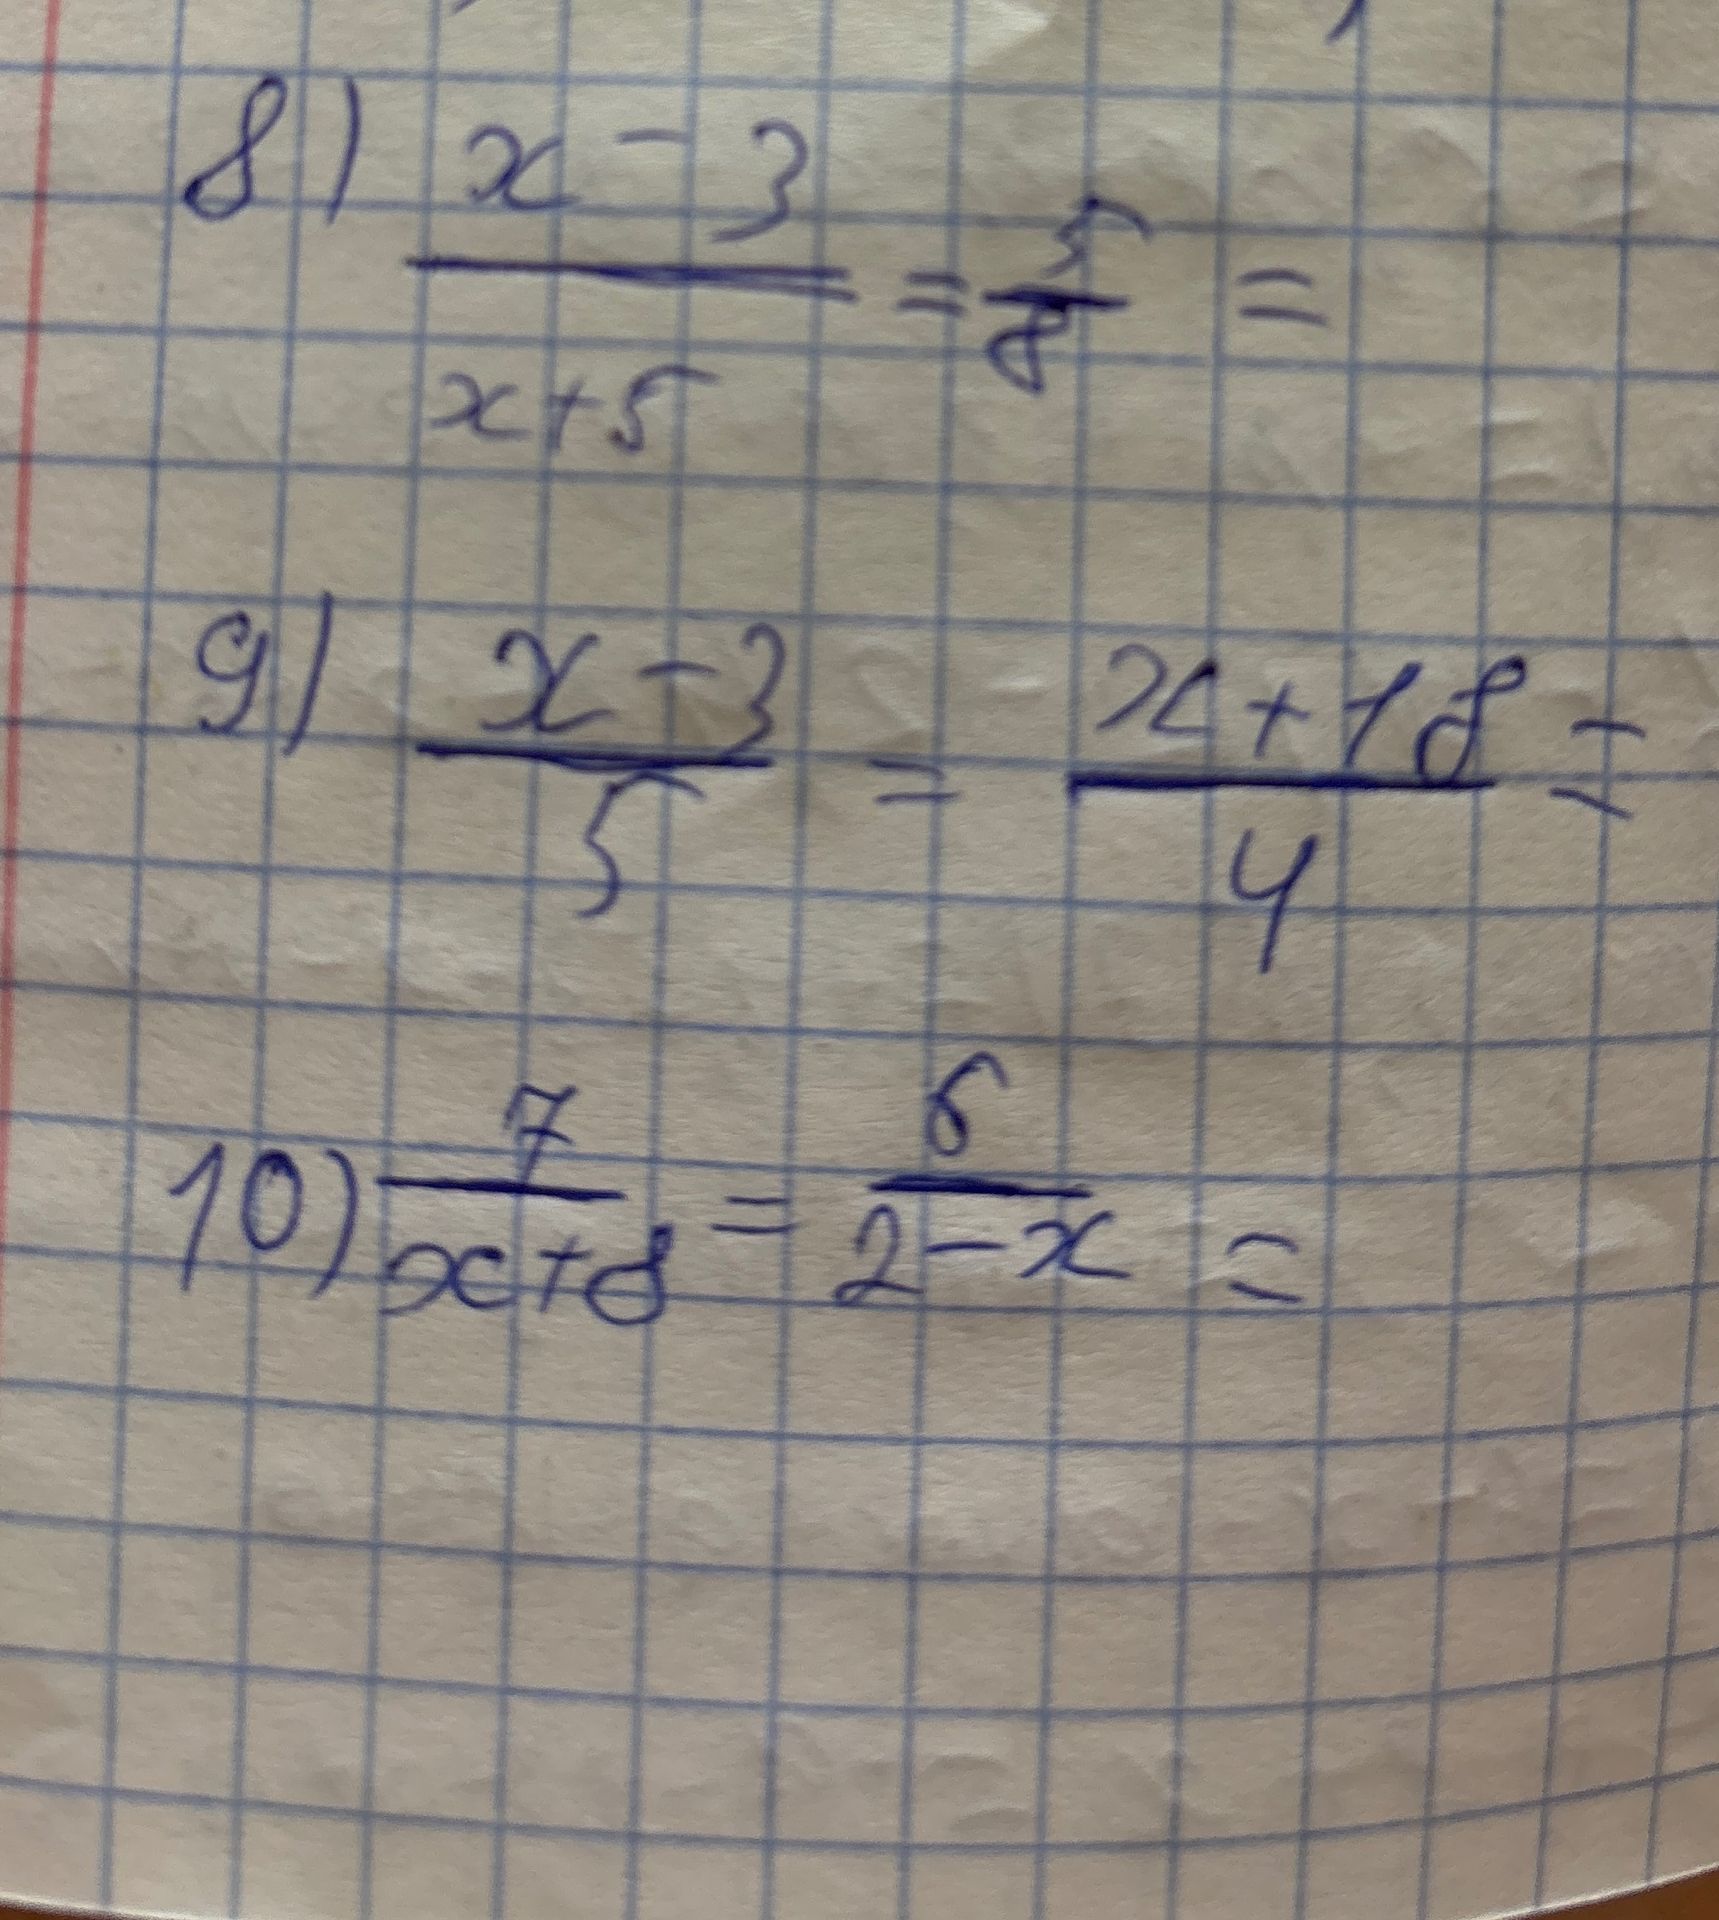 8) x-3/x+5 = 5/8 =
9) x-3/5 = x+18/4 =
10) 7/x+8 = 6/2-x =